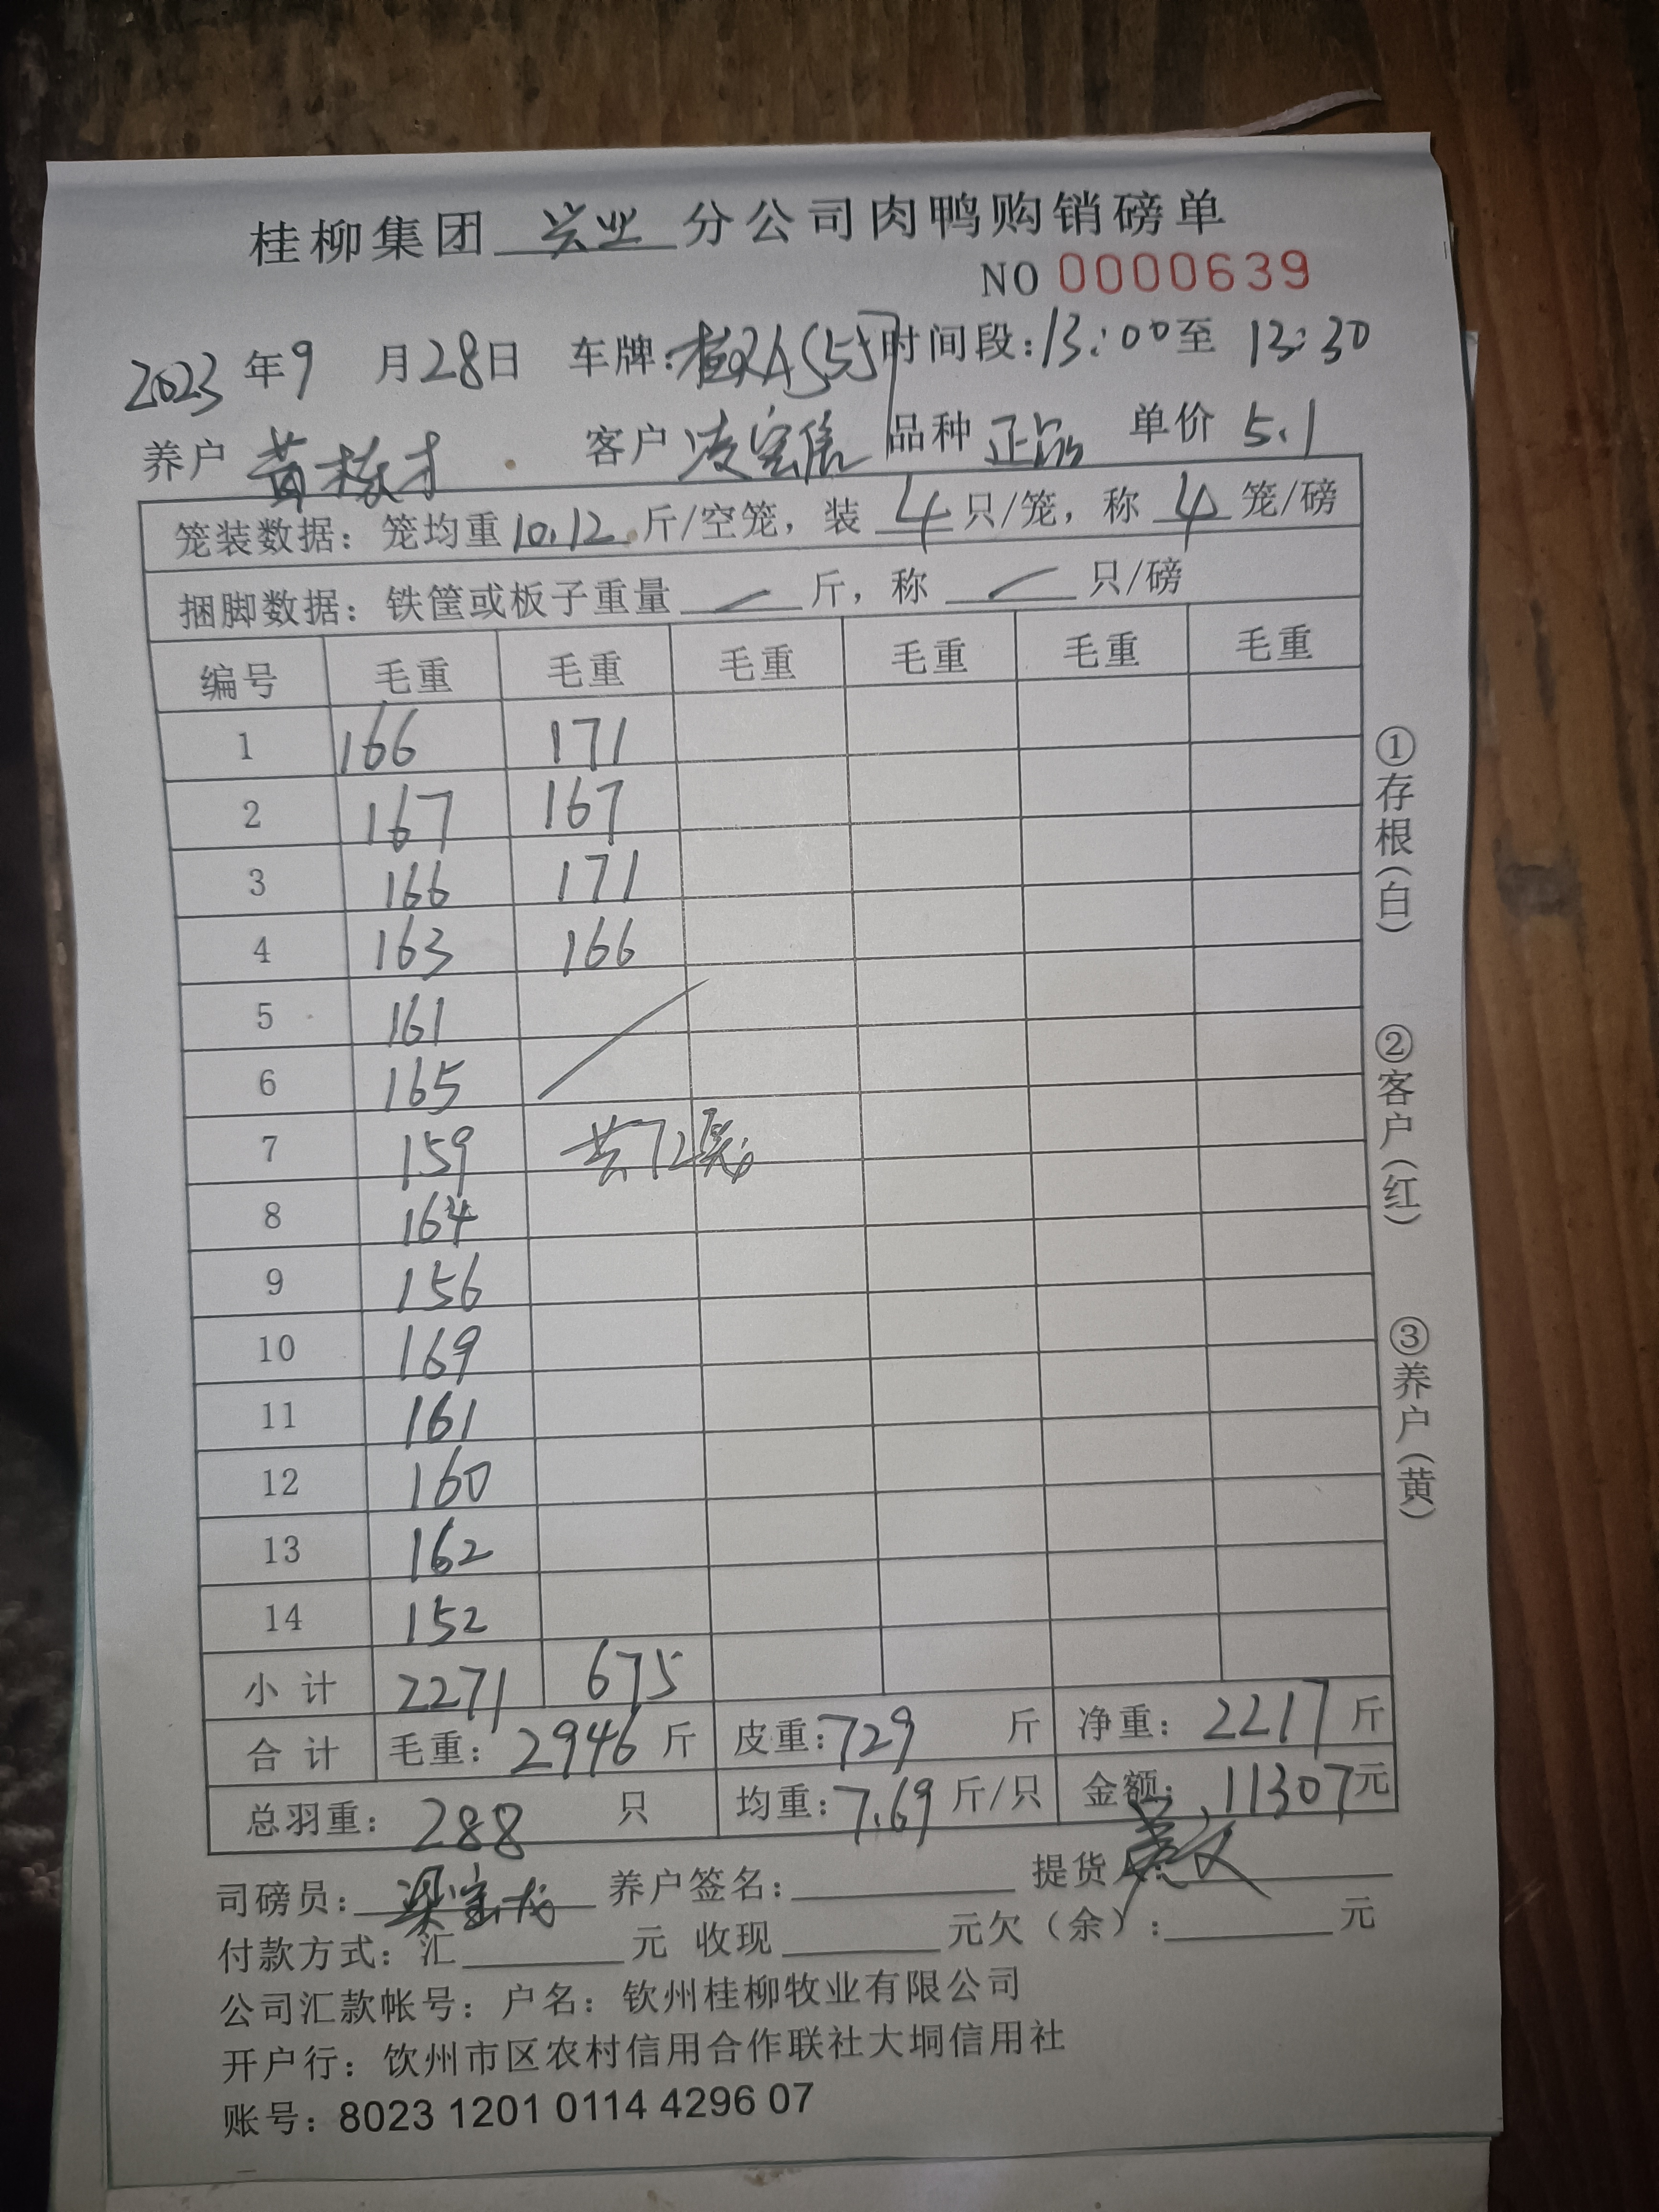 桂柳集团 兴业 分公司肉鸭购销磅单
NO 0000639
2023 年 9 月 28 日 车牌: 时间段: 13:00 至 13:30
养户 黄 才 客户 凌 品种 正品 单价 5.1
笼装数据: 笼均重 10.12 斤/空笼, 装 4 只/笼, 称 4 笼/磅
捆脚数据: 铁筐或板子重量 — 斤, 称 — 只/磅
编号 毛重 毛重 毛重 毛重 毛重 毛重
1 166 171
2 167 167
3 166 171
4 163 166
5 161
6 165
7 159 共72笼
8 164
9 156
10 169
11 161
12 160
13 162
14 152
小计 2271 675
合计 毛重: 2946 斤 皮重: 729 斤 净重: 2217 斤
总羽重: 288 只 均重: 7.69 斤/只 金额: 11307 元
①存根(白)
②客户(红)
③养户(黄)
司磅员: 梁宝龙 养户签名: 提货人:
付款方式: 汇 元 收现 元欠(余): 元
公司汇款帐号: 户名: 钦州桂柳牧业有限公司
开户行: 钦州市区农村信用合作联社大垌信用社
账号: 8023 1201 0114 4296 07